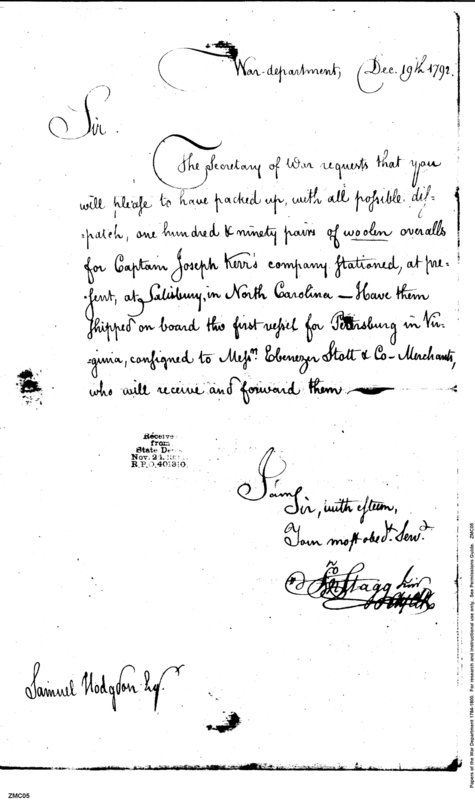 War-department, Dec. 19th 1792.
Sir.
The Secretary of War requests that you
will please to have packed up, with all possible dis=
=patch, one hundred & ninety pairs of woolen overalls
for Captain Joseph Kerr's company stationed, at pre=
=sent, at Salisbury, in North Carolina — Have them
shipped on board the first vessel for Petersburg in Vir=
=ginia, consigned to Messrs. Ebenezer Stott & Co - Merchants,
who will receive and forward them
Received
from
State De
Nov. 21,
R.P.O. 401310.
I am
Sir, with esteem,
Your most obedt. Servt.
Jno Stagg Junr
Samuel Hodgdon Esq.
ZMC05
Papers of the War Department 1784-1800. For research and instructional use only. See Permissions Guide. ZMC05